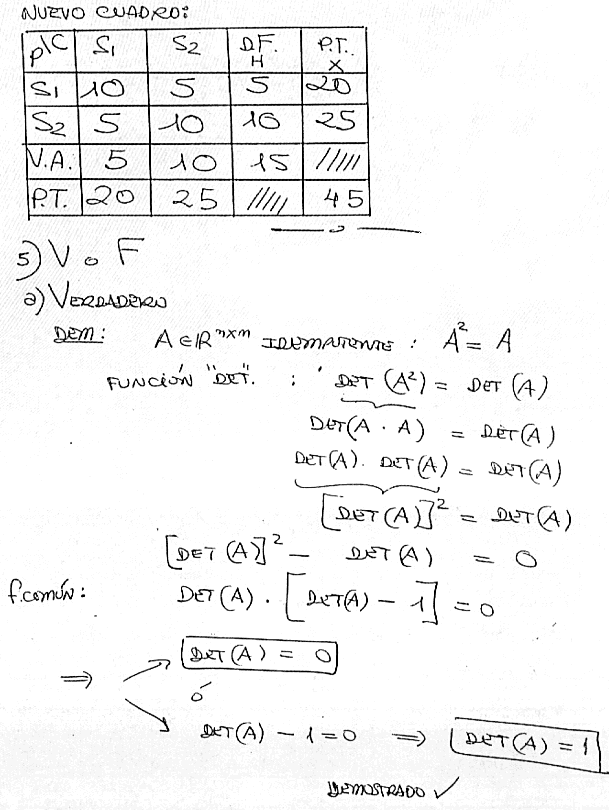 NUEVO CUADRO:
P\C S₁ S₂ D.F. H P.T. X
S₁ 10 5 5 20
S₂ 5 10 10 25
V.A. 5 10 15 /////
P.T. 20 25 ///// 45
5) V o F
a) VERDADERO
DEM: A ∈ ℝⁿˣⁿ IDEMPOTENTE : A² = A
FUNCIÓN "DET". : DET (A²) = DET (A)
DET(A · A) = DET(A)
DET(A) · DET(A) = DET(A)
[DET(A)]² = DET(A)
[DET(A)]² - DET(A) = 0
f.común: DET(A) · [DET(A) - 1] = 0
⇒ DET(A) = 0
ó
DET(A) - 1 = 0 ⇒ DET(A) = 1
DEMOSTRADO ✓